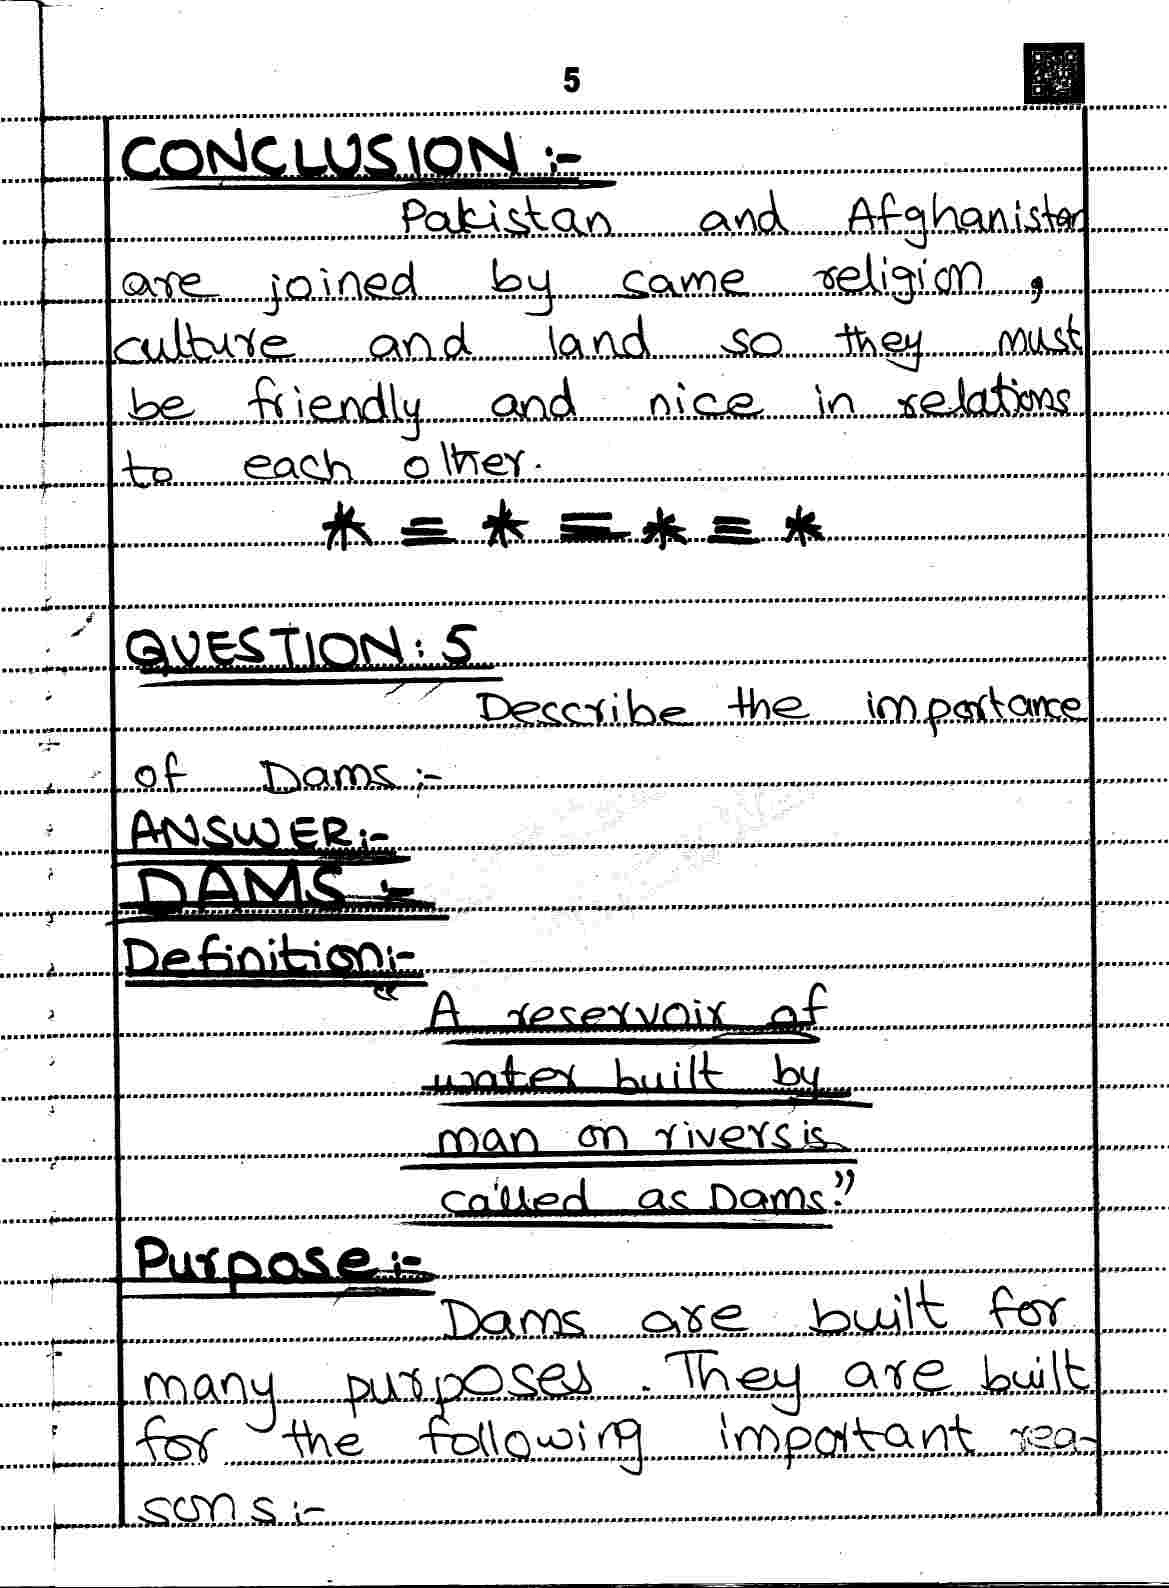 5
CONCLUSION :-
Pakistan and Afghanistan
are joined by same religion ,
culture and land so they must
be friendly and nice in relations
to each other.
* = * = * = *
QUESTION: 5
Describe the importance
of Dams :-
ANSWER:-
DAMS :-
Definition:-
“A reservoir of
water built by
man on rivers is
called as Dams.”
Purpose:-
Dams are built for
many purposes. They are built
for the following important rea-
sons:-